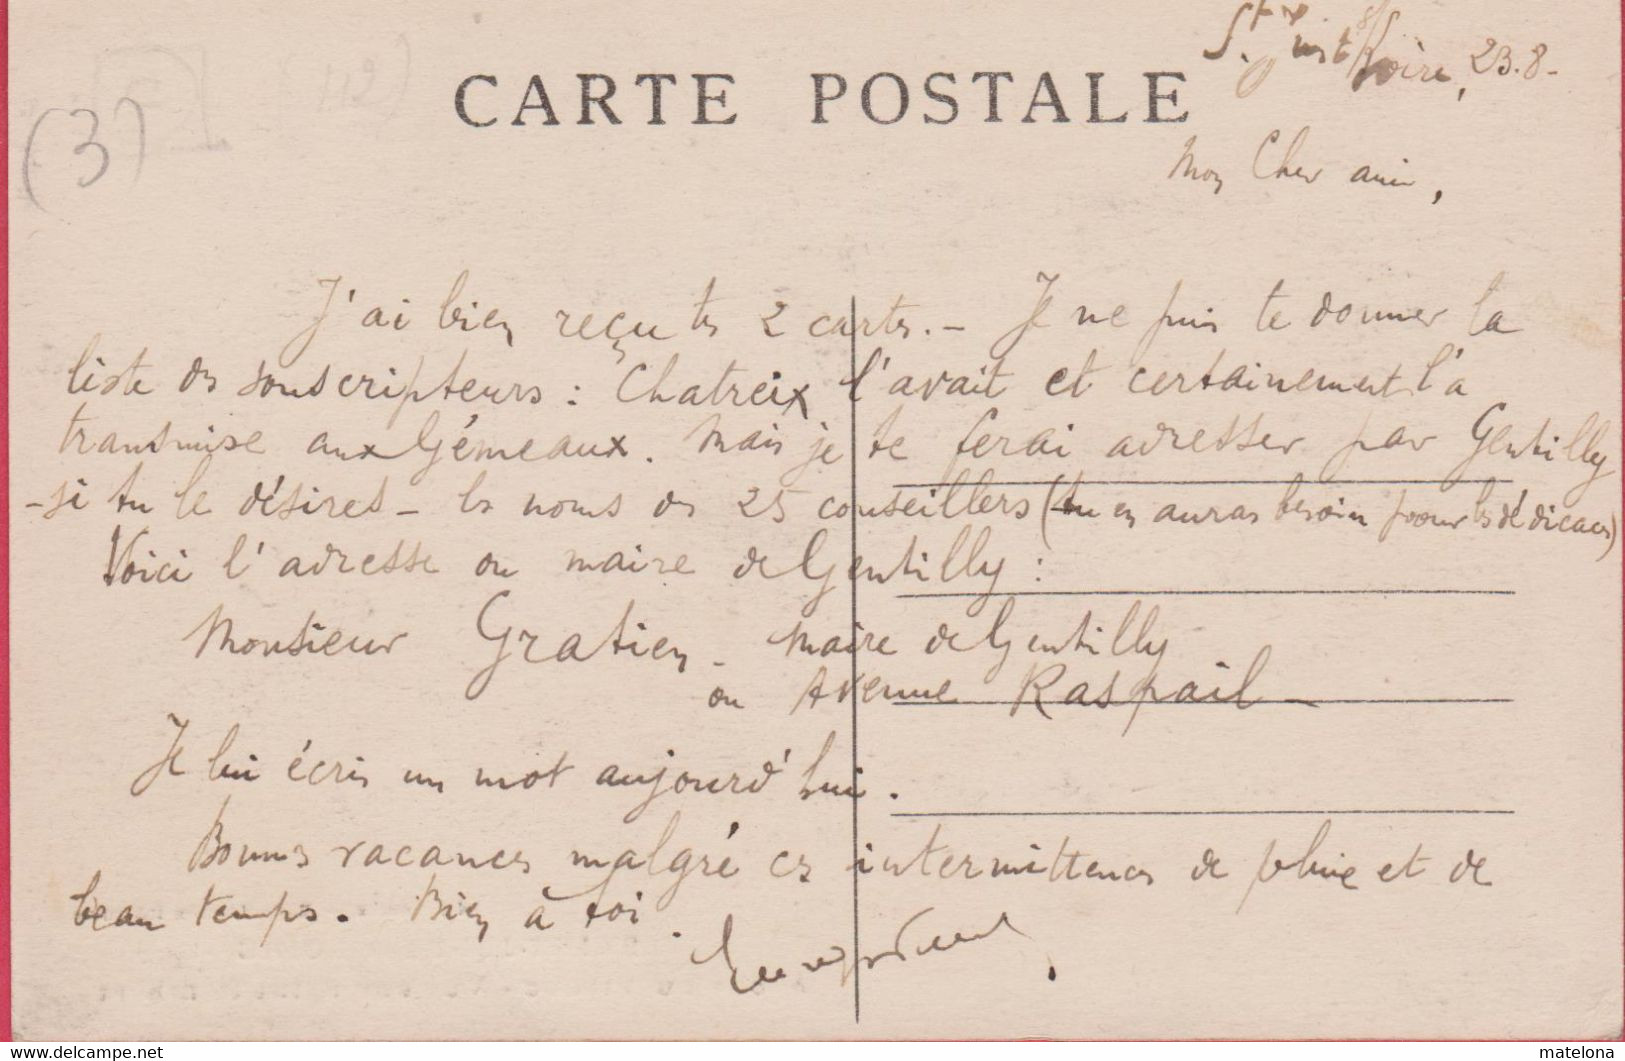 St Just s/Loire, 23.8-
CARTE POSTALE
(3)
(112)
Mon Cher ami,
J'ai bien reçu tes 2 cartes. - Je ne puis te donner la
liste des souscripteurs : Chatreix l'avait et certainement l'a
transmise aux Gémeaux. Mais je te ferai adresser par Gentilly
- si tu le désires - les noms des 25 conseillers (tu en auras besoin pour les dédicaces)
Voici l'adresse du maire de Gentilly :
Monsieur Gratien - Maire de Gentilly
ou Avenue Raspail -
Je lui écris un mot aujourd'hui.
Bonnes vacances malgré ces intermittences de pluie et de
beau temps. Bien à toi.
www.delcampe.net
matelona